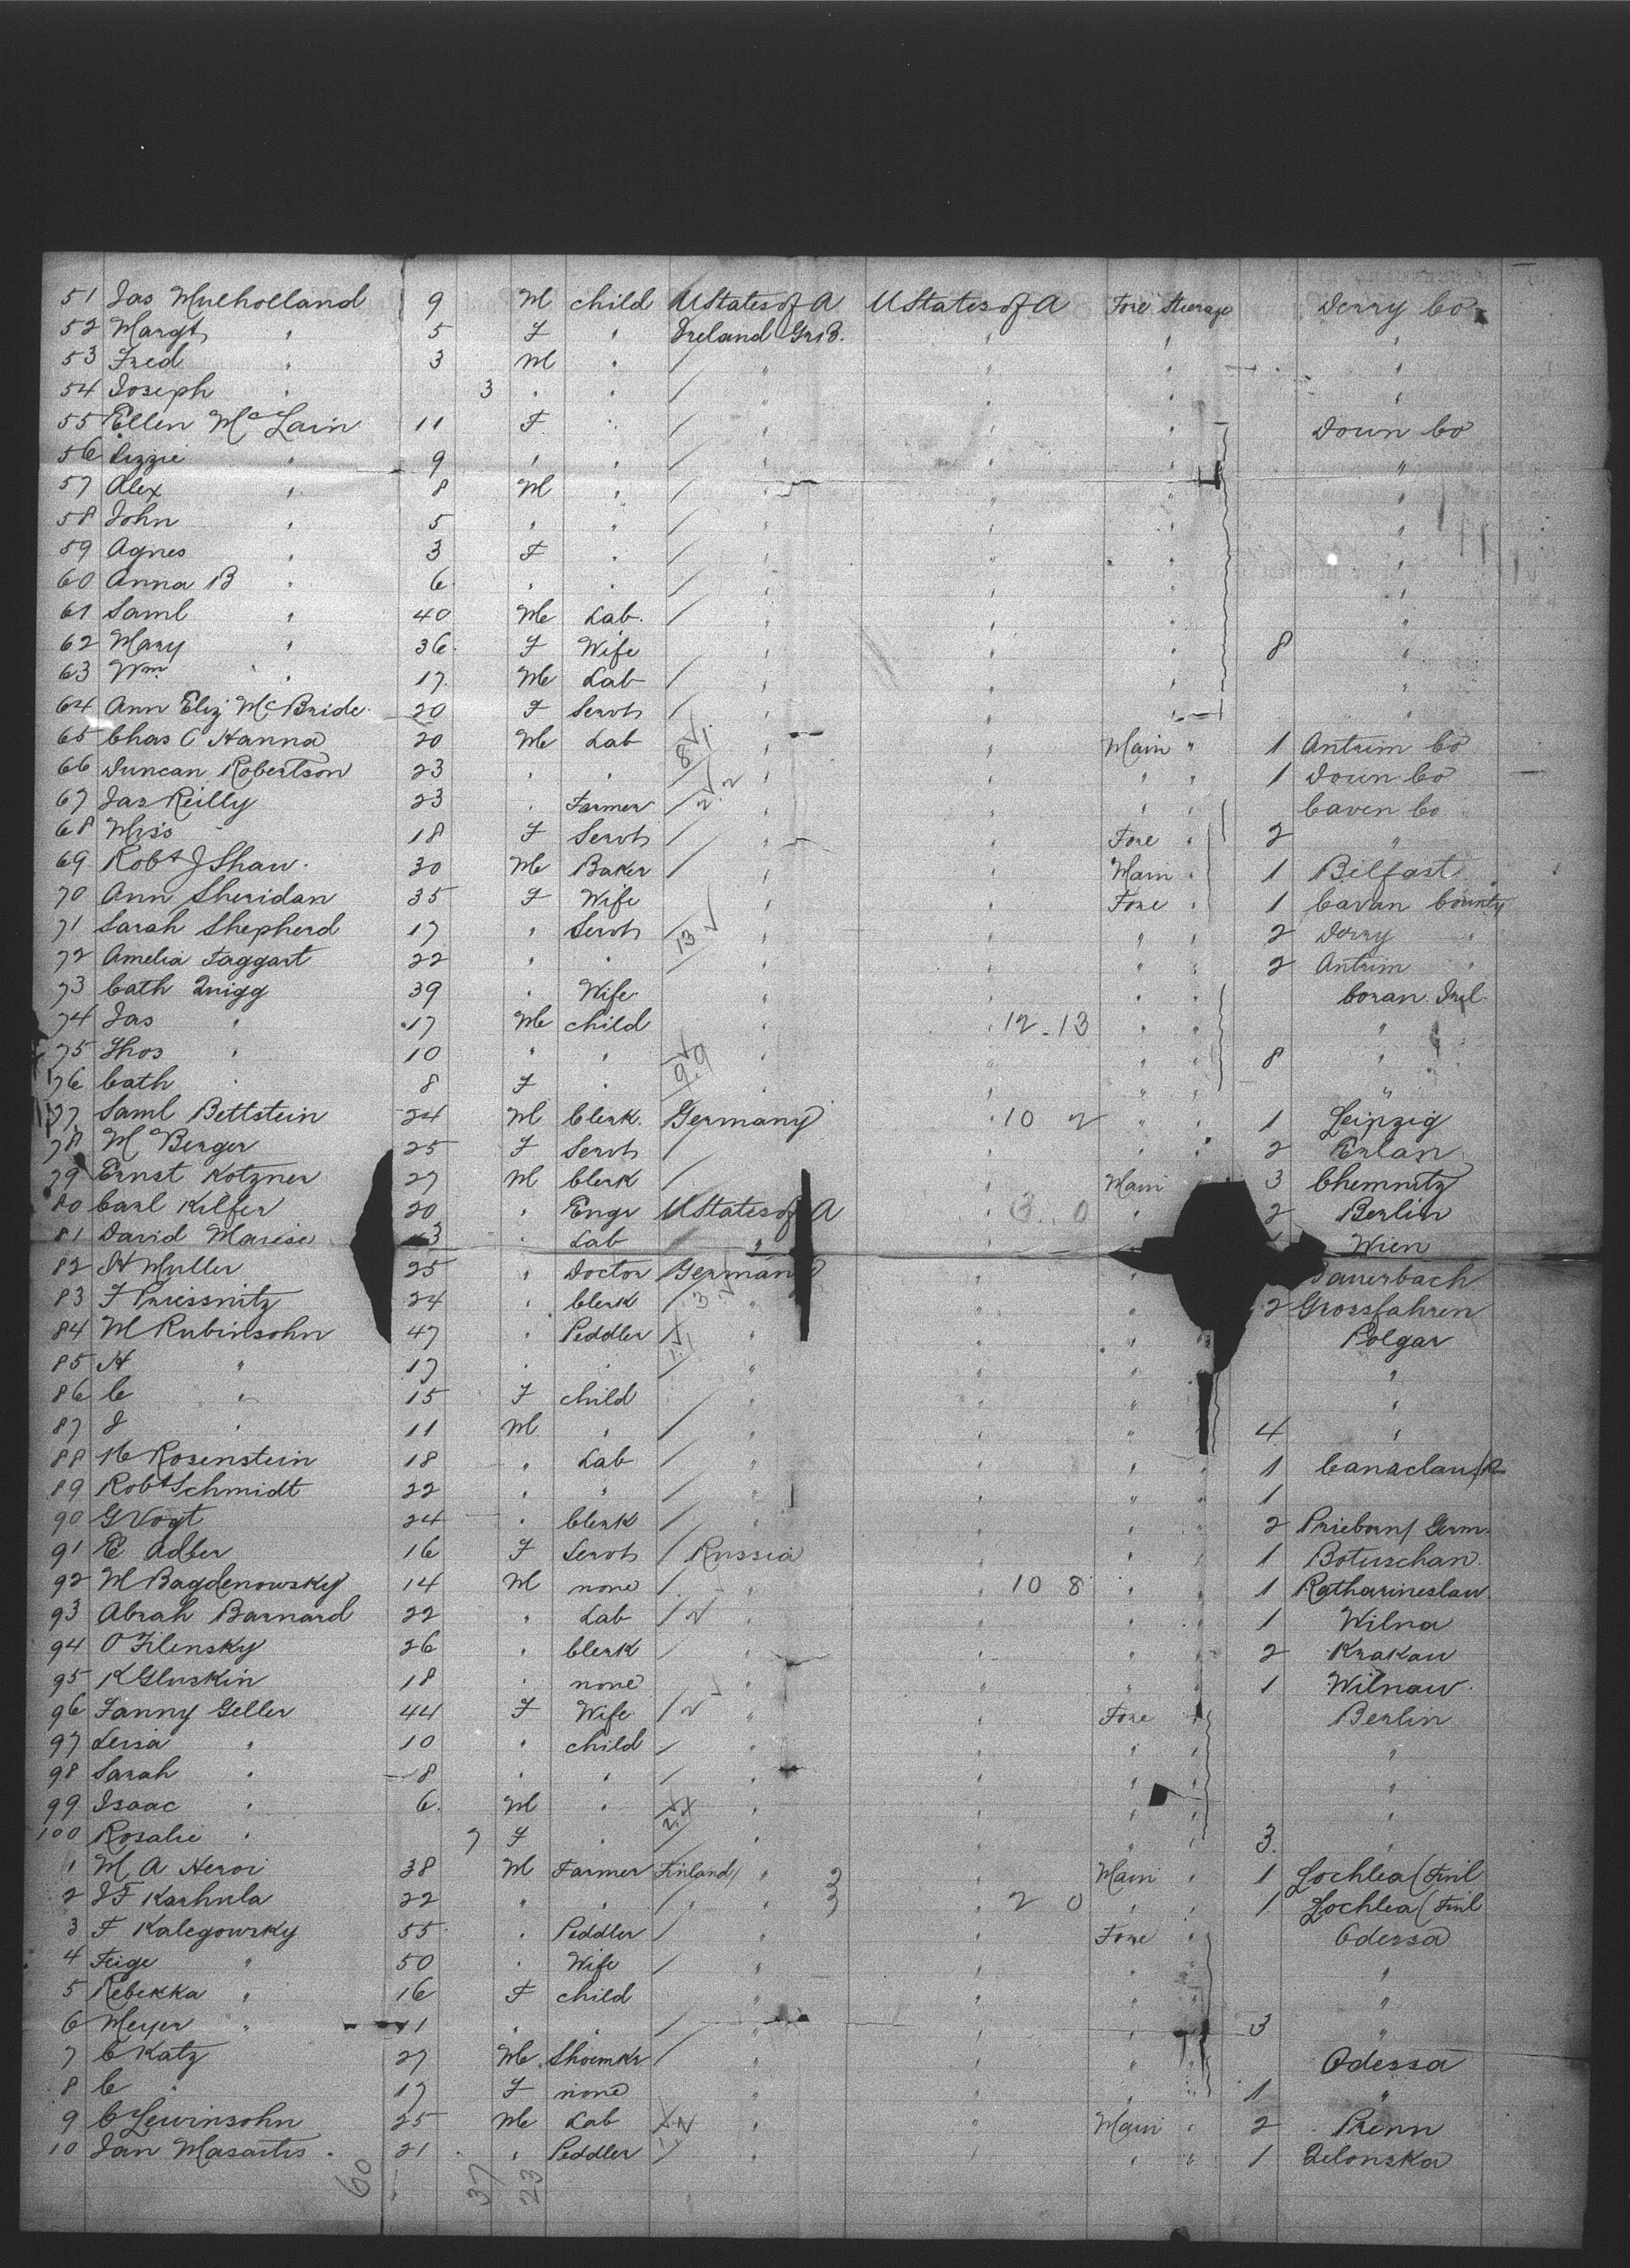 51 Jas Mulholland 9 M child UStates of A UStates of A Fore Steerage Derry Co
52 Margt " 5 F " Ireland Gr B. " " "
53 Fred " 3 M " / " " " "
54 Joseph " 3 " " / " " " "
55 Ellen McLain 11 F " / " " " Down Co
56 Lizzie " 9 " " / " " " "
57 Alex " 8 M " / " " " "
58 John " 5 " " / " " " "
59 Agnes " 3 F " / " " " "
60 Anna B " 6 " " / " " " "
61 Saml " 40 M Lab. / " " " "
62 Mary " 36 F Wife " " " 8 "
63 Wm " 17 M Lab / " " " "
64 Ann Eliz McBride 20 F Servt / " " " "
65 Chas C Hanna 20 M Lab " " Main " 1 Antrim Co
66 Duncan Robertson 23 " " / " " " " 1 Down Co
67 Jas Reilly 23 " Farmer / " " " " Caven Co
68 Miss 18 F Servt / " " Fore " 2 "
69 Robt J Shaw 30 M Baker / " " Main " 1 Bilfast
70 Ann Sheridan 35 F Wife " " Fore " 1 Cavan County
71 Sarah Shepherd 17 " Servt / 13 " " " " 2 Derry "
72 Amelia Taggart 22 " " / " " " " 2 Antrim "
73 Cath Quigg 39 " Wife " " " " Irel.
74 Jas " 17 M child " " 12-13 " " "
75 Thos " 10 " " " " " " 8 "
76 Cath " 8 F " " " " " "
77 Saml Bettstein 24 M Clerk. Germany " 10 2 " " 1 Leipzig
78 M Berger 25 F Servt / " " " 2 Erlan
79 Ernst Kotzner 27 M Clerk / " Main 3 Chemnitz
80 Carl Kilfer 20 " Engr UStates of A " 3 0 " 2 Berlin
81 David 3 " Lab / " " Wien
82 H Muller 25 " Doctor Germany " "
83 F Priessnitz 24 " Clerk / 3 " " " 2 Grossfahren
84 M Rubinsohn 47 " Peddler " " " Polgar
85 H " 17 " " / " " " "
86 C " 15 F child / " " " "
87 J " 11 M " / " " " 4 "
88 Rosenstein 18 " Lab / " " " " 1
89 Robt Schmidt 22 " " / " " " " 1
90 G Vogt 24 " Clerk / " " " " 2 Germ.
91 E Adler 16 F Servt / Russia " " " 1 Botuschan
92 M Bagdenowsky 14 M none / " " 10 8 " " 1 Katharineslaw
93 Abrah Barnard 22 " Lab / " " " " 1 Wilna
94 O Filensky 26 " Clerk / " " " " 2 Krakau
95 K Gluskin 18 " none " " " " 1 Wilnaw
96 Fanny Geller 44 F Wife / " " Fore " Berlin
97 Leisa " 10 " child / " " " " "
98 Sarah " 8 " " / " " " " "
99 Isaac " 6 M " " " " " "
100 Rosalie " 7 F " / " " " " 3 "
1 M A Heroi 38 M Farmer Finland " Main " 1 Lochlea (Finl
2 J F Karhula 22 " " / " " 2 0 " " 1 Lochlea (Finl
3 F Kalegowsky 55 " Peddler / " Fore " Odessa
4 Feige " 50 " Wife / " " " " "
5 Rebekka " 16 F child " " " " "
6 Meyer " 11 " " / " " " 3 "
7 C Katz 27 M Shoemkr / " " " Odessa
8 C " 17 F none " " " 1 "
9 C Lewinsohn 25 M Lab " " Main " 2 Prenn
10 Jan Masaitis 21 " Peddler / " " " " 1
60 37 23